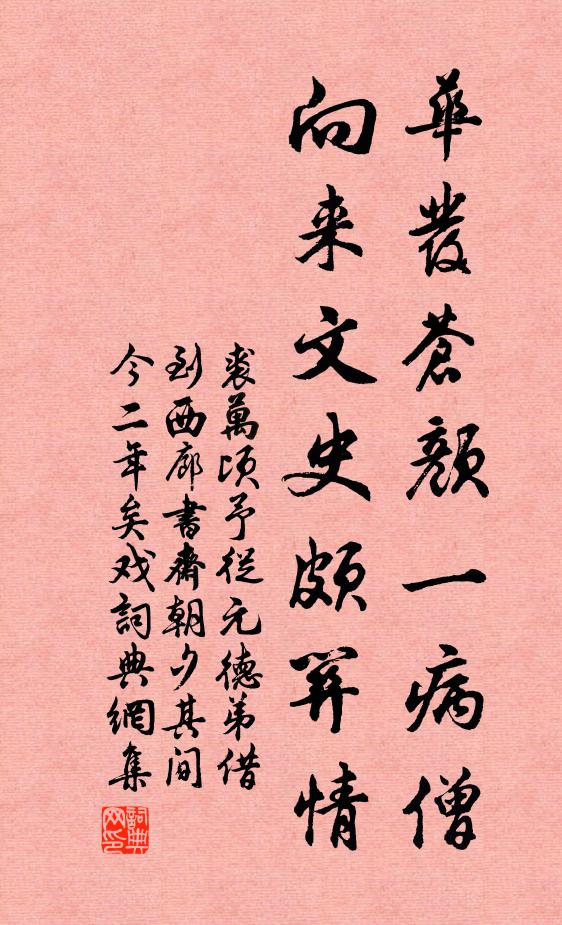 華發蒼顔一病僧
向来文史頗関情
裘萬頃予從元德弟借
到西廊書齋朝夕其间
今二年矣戏詞典網集
詞典网印